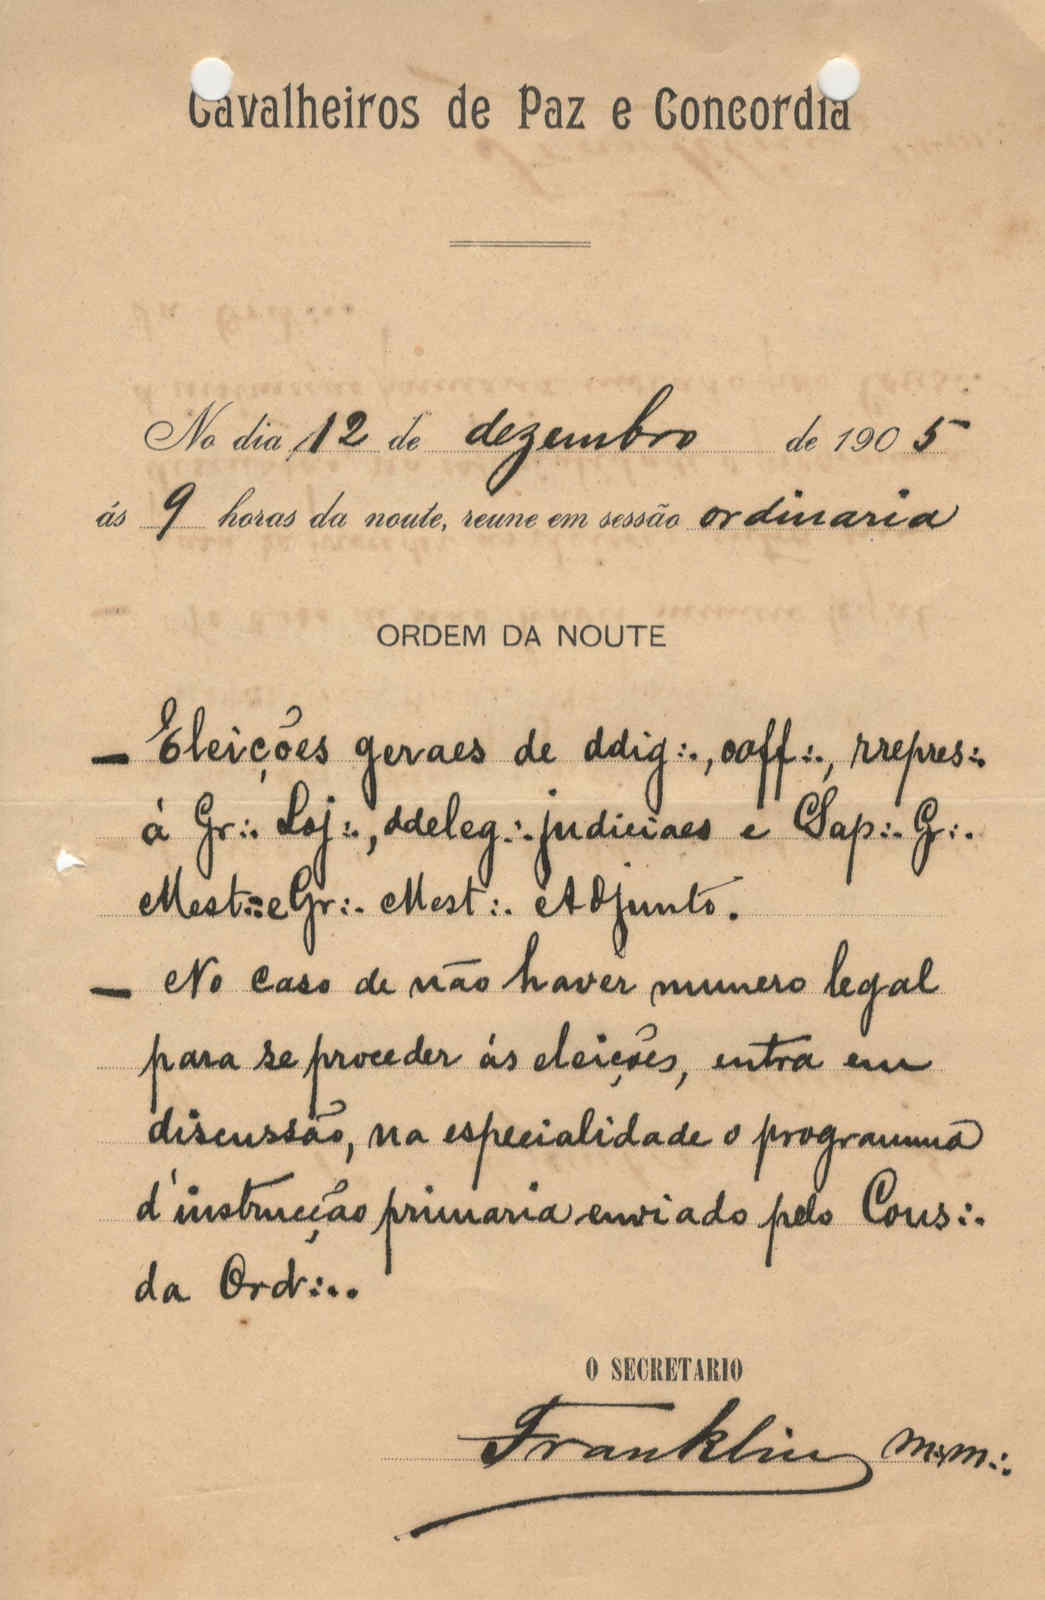 Cavalheiros de Paz e Concordia
No dia 12 de dezembro de 1905
ás 9 horas da noute, reune em sessão ordinaria
ORDEM DA NOUTE
— Eleições geraes de ddig∴, ooff∴, rrepres∴
á Gr∴ Loj∴, ddeleg∴ judiciaes e Sap∴ G∴
Mest∴ e Gr∴ Mest∴ Adjunto.
— No caso de não haver numero legal
para se proceder ás eleições, entra em
discussão, na especialidade o programma
d'instrucção primaria enviado pelo Cons∴
da Ord∴.
O SECRETARIO
Franklin M∴M∴